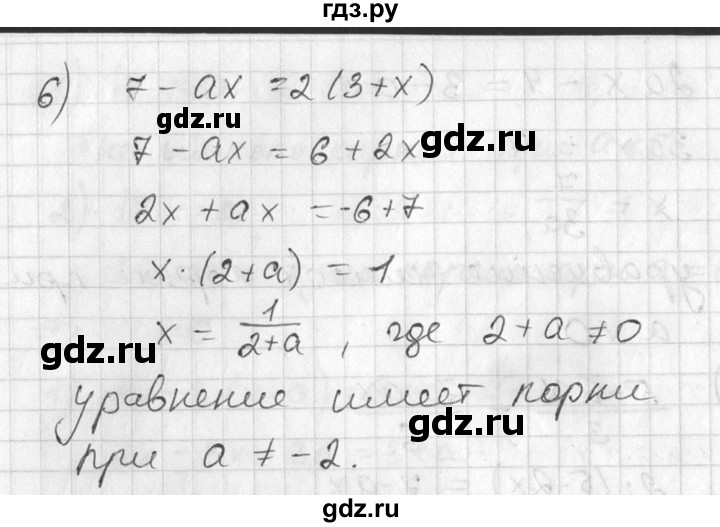 гдз.ру
6) 7 - ax = 2 (3 + x)
gdz.ru
7 - ax = 6 + 2x
2x + ax = -6 + 7
x · (2 + a) = 1
x = 1/(2+a) , где 2 + a ≠ 0
gdz.ru
уравнение имеет корни
gdz.ru
при a ≠ -2.
gdz.ru